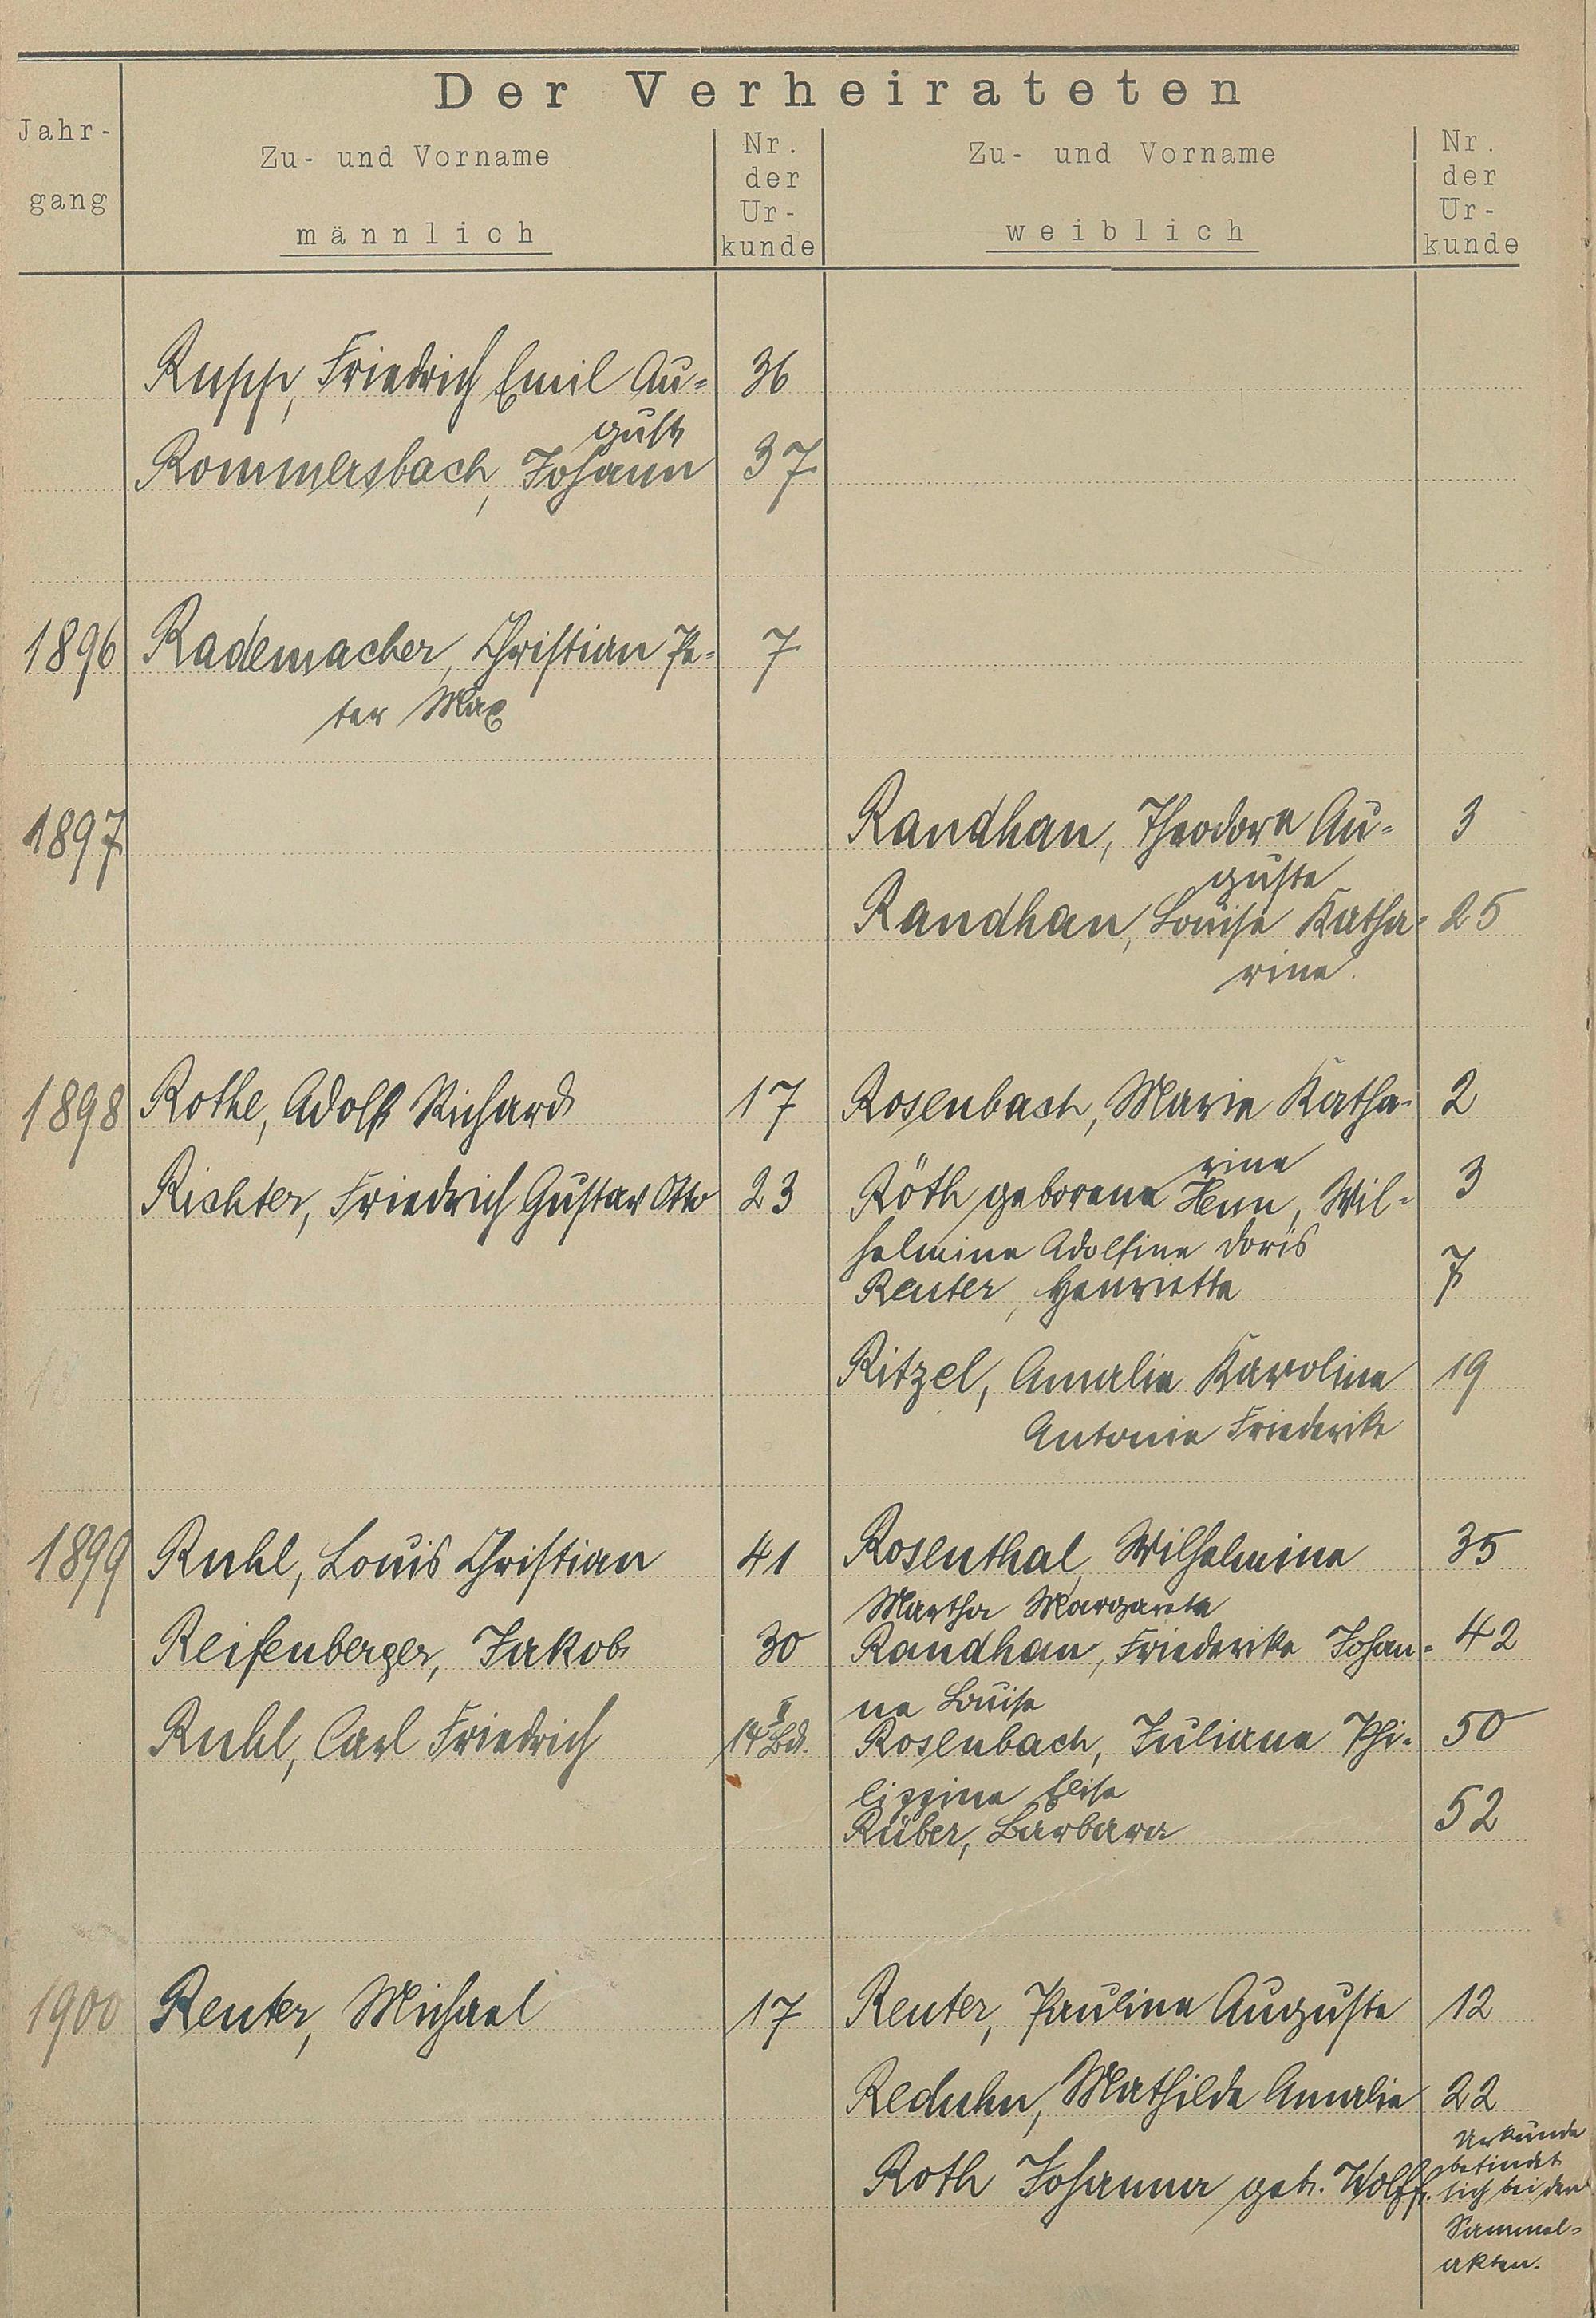 Der Verheirateten
Jahr-
gang
Zu- und Vorname
männlich
Nr.
der
Ur-
kunde
Zu- und Vorname
weiblich
Nr.
der
Ur-
kunde
Rupp, Friedrich Emil Au= 36
gust
Rommersbach, Johann 37
1896 Rademacher, Christian Pe= 7
ter Max
1897 Randhan, Theodora Au= 3
guste
Randhan, Louise Katha= 25
rine.
1898 Rothe, Adolf Richard 17 Rosenbach, Marie Katha- 2
rine
Richter, Friedrich Gustav Otto 23 Röth geborene Henn, Wil= 3
helmine Adolfine Doris
Reuter, Henriette 7
Ritzel, Amalie Karoline 19
Antonie Friederike
1899 Ruhl, Louis Christian 41 Rosenthal, Wilhelmine 35
Martha Margareta
Reifenberger, Jakob 30 Randhan, Friederike Johan= 42
ne Louise
Ruhl, Carl Friedrich 14 II Bd. Rosenbach, Juliane Phi= 50
lippine Elise
Rüber, Barbara 52
1900 Reuter, Michael 17 Reuter, Pauline Auguste 12
Reduhn, Mathilde Amalie 22
Roth Johanna geb. Wolff. Urkunde
befindet
sich bei den
Sammel=
akten.